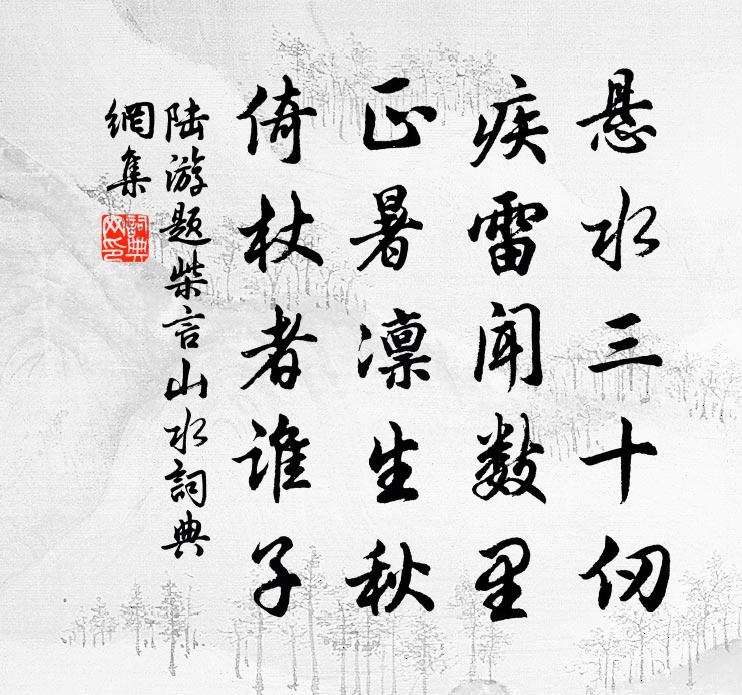 悬水三十仞
疾雷闻数里
正暑凛生秋
倚杖者谁子
陆游题柴言山水詞典
網集
詞典
网印